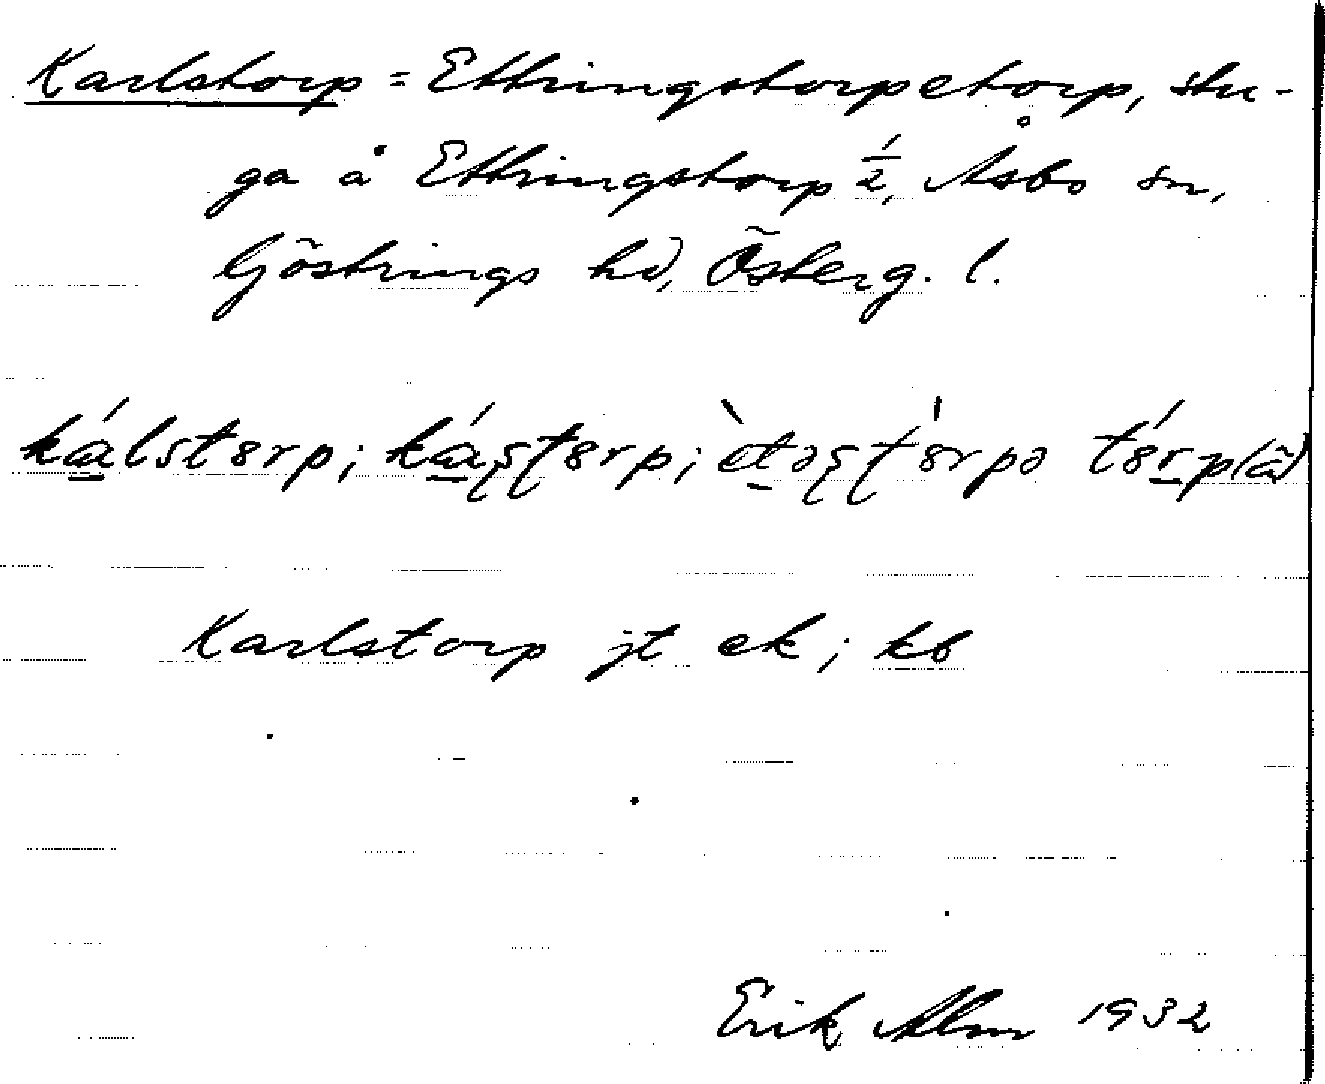 Karlstorp = Ettringstorpetorp, stu-
ga å Ettringstorp 1/2, Åsbo sn,
Göstrings hd, Österg. l.
kálstɘrp; káʂʈɘrp; ètəʂʈ'ɘrpə tɘ́rp(ã)
Karlstorp jt ek; kb
Erik Alm 1932